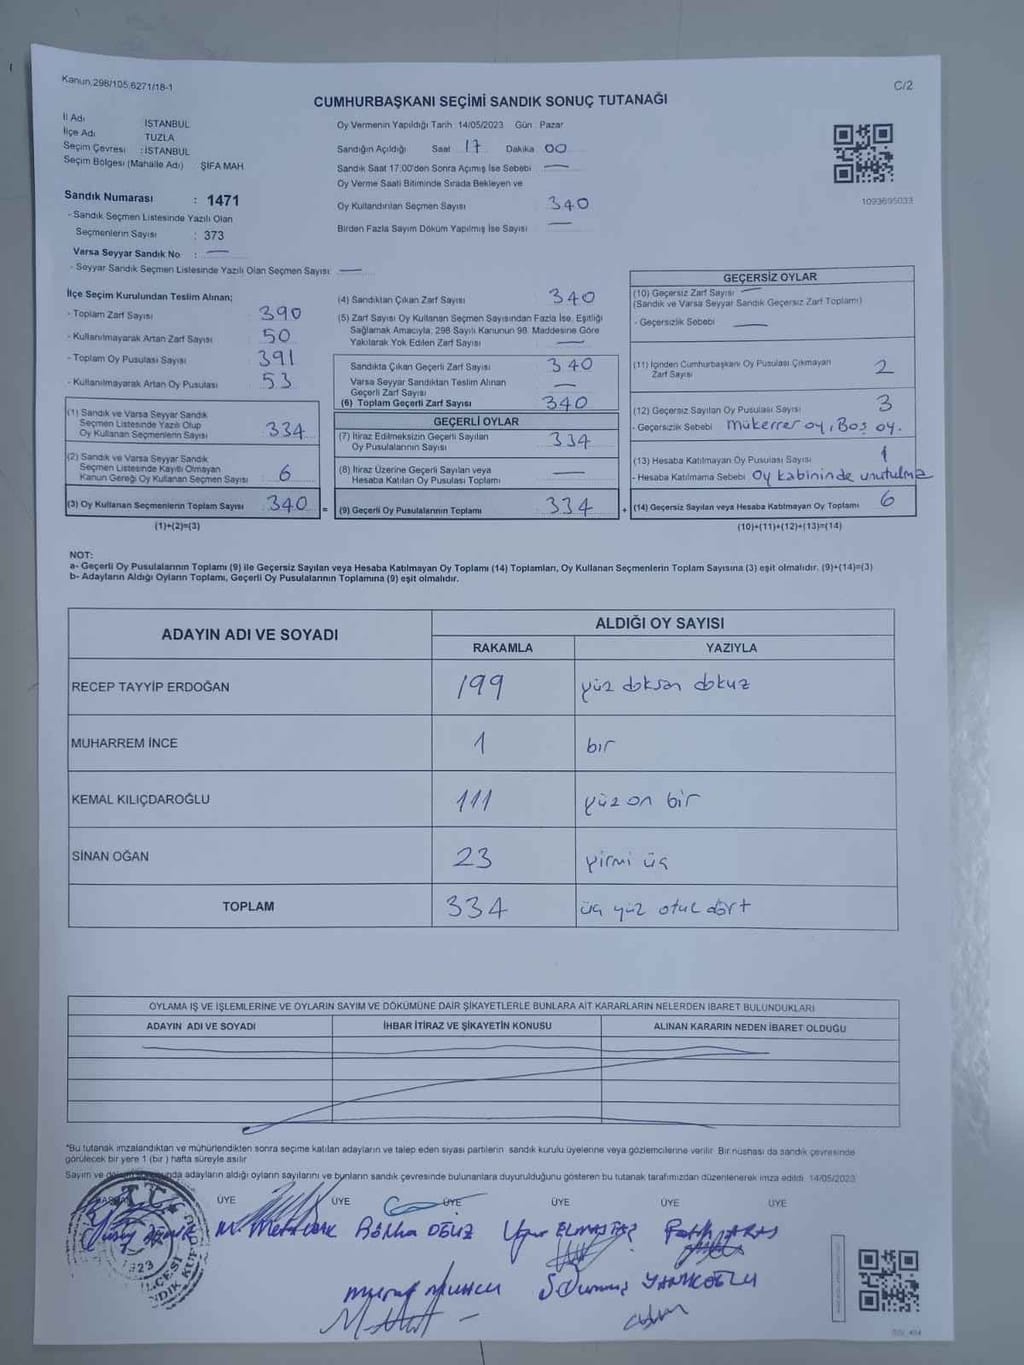 Kanun 298/105;6271/18-1
C/2
CUMHURBAŞKANI SEÇİMİ SANDIK SONUÇ TUTANAĞI
İl Adı İSTANBUL
İlçe Adı TUZLA
Seçim Çevresi : İSTANBUL
Seçim Bölgesi (Mahalle Adı) ŞİFA MAH
Sandık Numarası : 1471
- Sandık Seçmen Listesinde Yazılı Olan
Seçmenlerin Sayısı : 373
Varsa Seyyar Sandık No : —
- Seyyar Sandık Seçmen Listesinde Yazılı Olan Seçmen Sayısı: —
Oy Vermenin Yapıldığı Tarih 14/05/2023 Gün Pazar
Sandığın Açıldığı Saat 17 Dakika 00
Sandık Saat 17:00'den Sonra Açımış İse Sebebi —
Oy Verme Saati Bitiminde Sırada Bekleyen ve
Oy Kullandırılan Seçmen Sayısı 340
Birden Fazla Sayım Döküm Yapılmış İse Sayısı —
1093695033
İlçe Seçim Kurulundan Teslim Alınan;
- Toplam Zarf Sayısı 390
- Kullanılmayarak Artan Zarf Sayısı 50
- Toplam Oy Pusulası Sayısı 391
- Kullanılmayarak Artan Oy Pusulası 53
(1) Sandık ve Varsa Seyyar Sandık
Seçmen Listesinde Yazılı Olup
Oy Kullanan Seçmenlerin Sayısı 334
(2) Sandık ve Varsa Seyyar Sandık
Seçmen Listesinde Kayıtlı Olmayan
Kanun Gereği Oy Kullanan Seçmen Sayısı 6
(3) Oy Kullanan Seçmenlerin Toplam Sayısı 340 =
(1)+(2)=(3)
(4) Sandıktan Çıkan Zarf Sayısı 340
(5) Zarf Sayısı Oy Kullanan Seçmen Sayısından Fazla İse, Eşitliği
Sağlamak Amacıyla, 298 Sayılı Kanunun 98. Maddesine Göre
Yakılarak Yok Edilen Zarf Sayısı —
Sandıkta Çıkan Geçerli Zarf Sayısı 340
Varsa Seyyar Sandıktan Teslim Alınan
Geçerli Zarf Sayısı —
(6) Toplam Geçerli Zarf Sayısı 340
GEÇERLİ OYLAR
(7) İtiraz Edilmeksizin Geçerli Sayılan
Oy Pusulasının Sayısı 334
(8) İtiraz Üzerine Geçerli Sayılan veya
Hesaba Katılan Oy Pusulası Toplamı —
(9) Geçerli Oy Pusulalarının Toplamı 334 +
GEÇERSİZ OYLAR
(10) Geçersiz Zarf Sayısı —
(Sandık ve Varsa Seyyar Sandık Geçersiz Zarf Toplamı)
- Geçersizlik Sebebi —
(11) İçinden Cumhurbaşkanı Oy Pusulası Çıkmayan
Zarf Sayısı 2
(12) Geçersiz Sayılan Oy Pusulası Sayısı 3
- Geçersizlik Sebebi Mükerrer oy, Boş oy.
(13) Hesaba Katılmayan Oy Pusulası Sayısı 1
- Hesaba Katılmama Sebebi Oy kabininde unutulma
(14) Geçersiz Sayılan veya Hesaba Katılmayan Oy Toplamı 6
(10)+(11)+(12)+(13)=(14)
NOT:
a- Geçerli Oy Pusulalarının Toplamı (9) ile Geçersiz Sayılan veya Hesaba Katılmayan Oy Toplamı (14) Toplamları, Oy Kullanan Seçmenlerin Toplam Sayısına (3) eşit olmalıdır. (9)+(14)=(3)
b- Adayların Aldığı Oyların Toplamı, Geçerli Oy Pusulalarının Toplamına (9) eşit olmalıdır.
ADAYIN ADI VE SOYADI ALDIĞI OY SAYISI
RAKAMLA YAZIYLA
RECEP TAYYİP ERDOĞAN 199 yüz doksan dokuz
MUHARREM İNCE 1 bir
KEMAL KILIÇDAROĞLU 111 yüz on bir
SİNAN OĞAN 23 yirmi üç
TOPLAM 334 üç yüz otuz dört
OYLAMA İŞ VE İŞLEMLERİNE VE OYLARIN SAYIM VE DÖKÜMÜNE DAİR ŞİKAYETLERLE BUNLARA AİT KARARLARIN NELERDEN İBARET BULUNDUKLARI
ADAYIN ADI VE SOYADI İHBAR İTİRAZ VE ŞİKAYETİN KONUSU ALINAN KARARIN NEDEN İBARET OLDUĞU
*Bu tutanak imzalandıktan ve mühürlendikten sonra seçime katılan adayların ve talep eden siyasi partilerin sandık kurulu üyelerine veya gözlemcilerine verilir. Bir nüshası da sandık çevresinde
görülecek bir yere 1 (bir ) hafta süreyle asılır
Sayım ve adayların aldığı oyların sayılarını ve bunların sandık çevresinde bulunanlara duyurulduğunu gösteren bu tutanak tarafımızdan düzenlenerek imza edildi 14/05/2023
ÜYE ÜYE ÜYE ÜYE ÜYE ÜYE
OĞUZ Uğur ELMASTAŞ Fatih ARAS
T.C.
1923
YANIKOĞLU